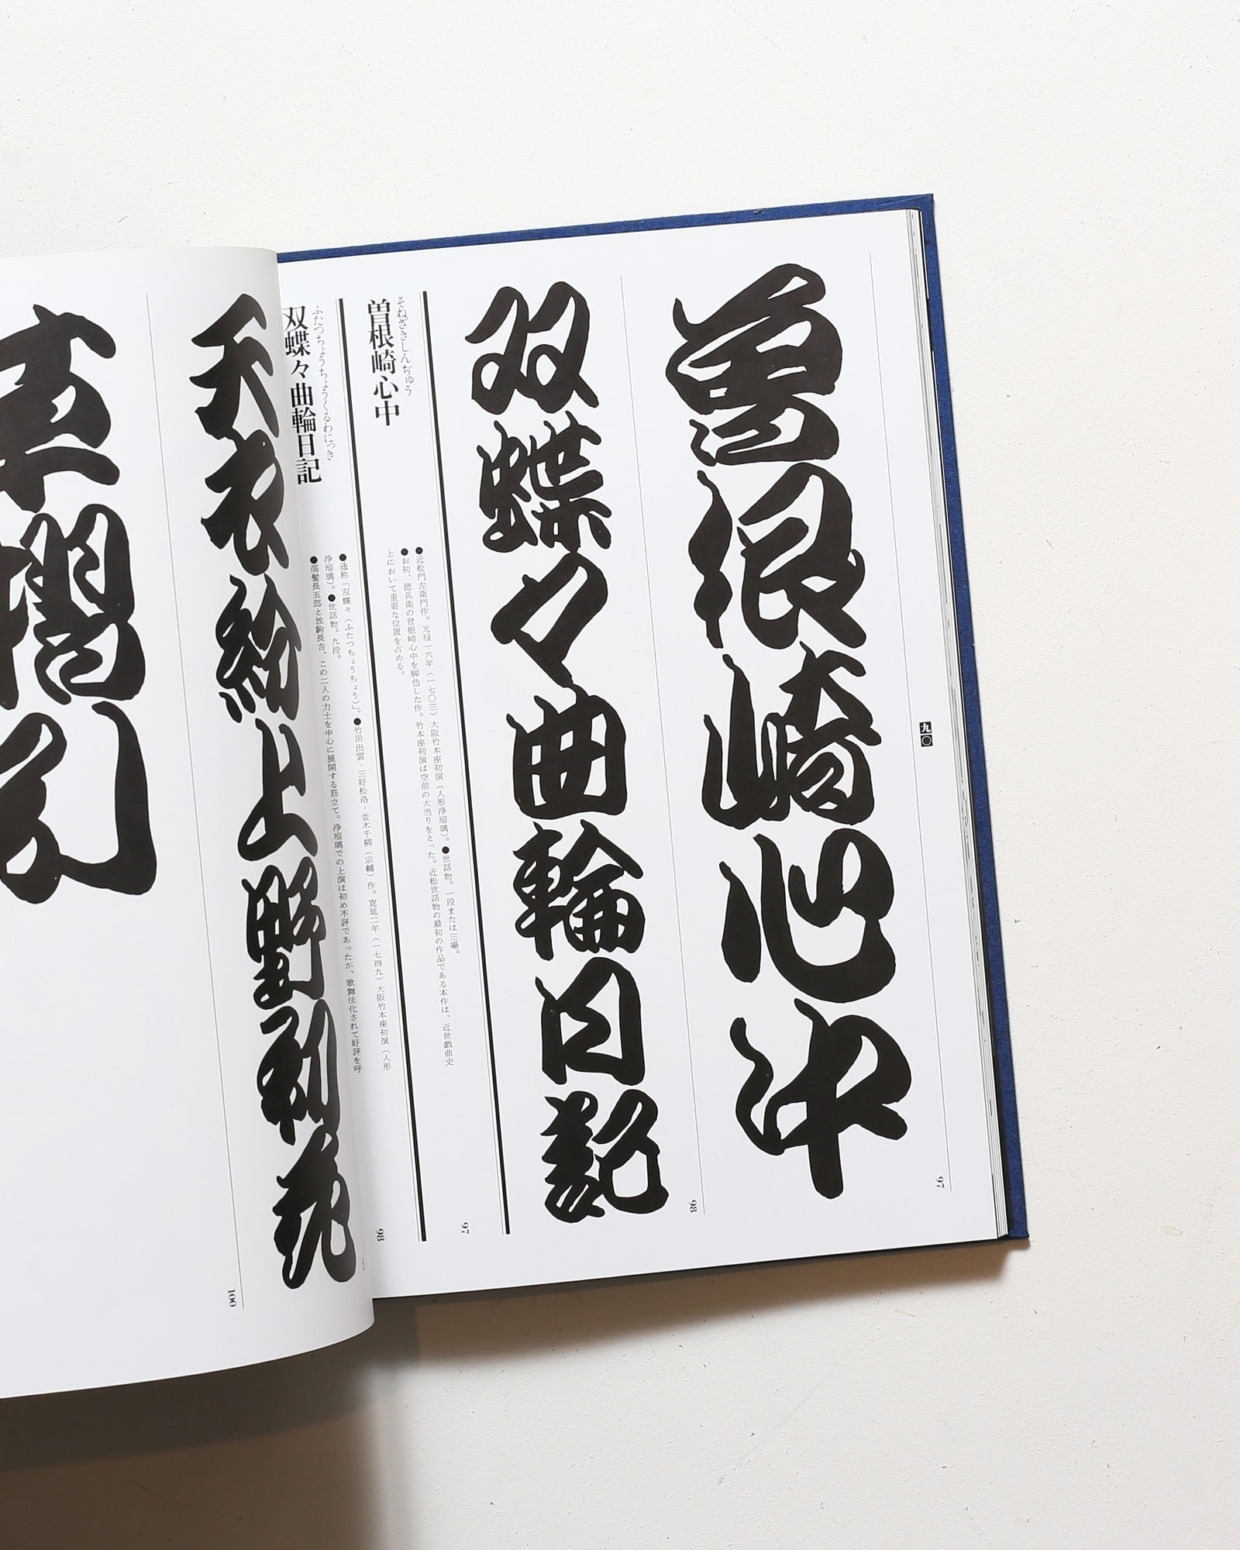 曽根崎心中
97
双蝶々曲輪日記
98
九〇
そねざきしんぢゅう
曽根崎心中
●近松門左衛門作。元禄一六年（一七〇三）大阪竹本座初演（人形浄瑠璃）。●世話物。一段または三場。
●お初、徳兵衛の曽根崎心中を脚色した作。竹本座初演は空前の大当りをとった。近松世話物の最初の作品である本作は、近世戯曲史
上において重要な位置を占める。
97
ふたつちょうちょうくるわにっき
双蝶々曲輪日記
●通称「双蝶々（ふたつちょうちょう）」。●竹田出雲・三好松洛・並木千柳（宗輔）作。寛延二年（一七四九）大阪竹本座初演（人形
浄瑠璃）。●世話物。九段。
●濡髪長五郎と放駒長吉、この二人の力士を中心に展開する筋立て。浄瑠璃での上演は初め不評であったが、歌舞伎化されて好評を呼
98
天衣紛上野初花
100
草摺引